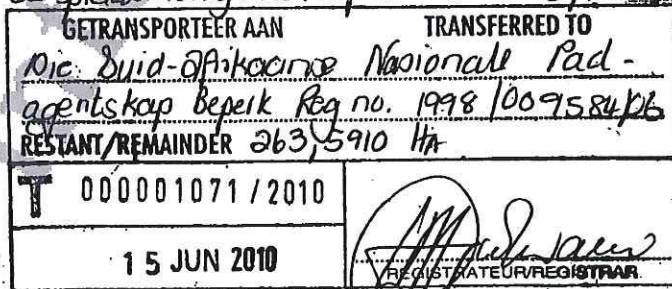 GETRANSPORTEER AAN TRANSFERRED TO
Die Suid-Afrikaanse Nasionale Pad-
agentskap Beperk Reg no. 1998/009584/06
RESTANT/REMAINDER 263,5910 HA
T 000001071/2010
15 JUN 2010
REGISTRATEUR/REGISTRAR